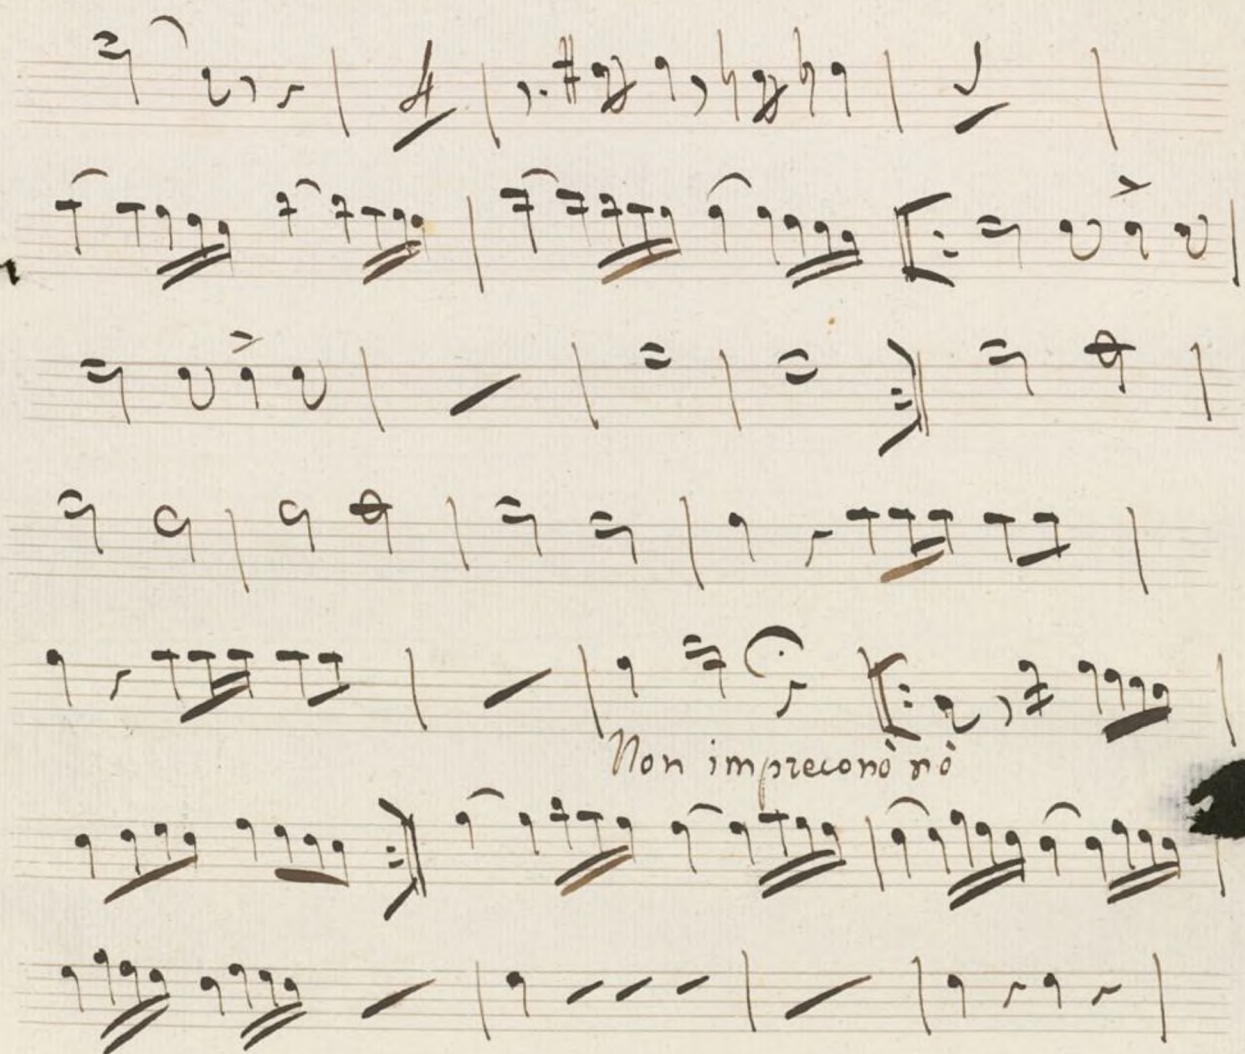 Non impreconò nò